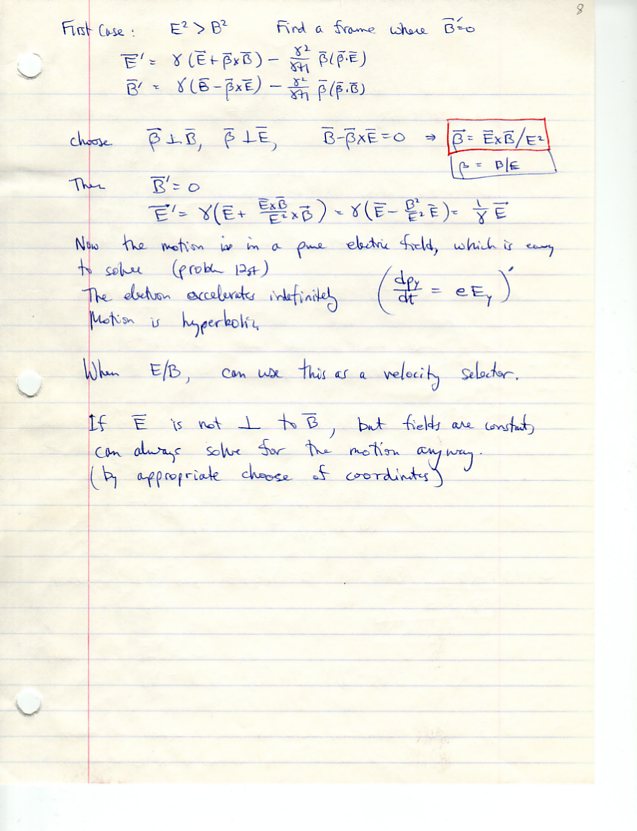 8
First Case: E² > B² Find a frame where B̄'=0
Ē' = γ(Ē + β̄×B̄) − γ²/(γ+1) β̄(β̄·Ē)
B̄' = γ(B̄ − β̄×Ē) − γ²/(γ+1) β̄(β̄·B̄)
choose β̄ ⊥ B̄, β̄ ⊥ Ē, B̄ − β̄×Ē = 0 ⇒ β̄ = Ē×B̄/E²
β = B/E
Then B̄' = 0
Ē' = γ(Ē + (Ē×B̄)/E² × B̄) = γ(Ē − B²/E² Ē) = 1/γ Ē
Now the motion is in a pure electric field, which is easy
to solve (problem 12.1)
The electron accelerates indefinitely (dp_y/dt = eE_y)'
Motion is hyperbolic
When E/B, can use this as a velocity selector.
If Ē is not ⊥ to B̄, but fields are constant,
can always solve for the motion anyway.
(by appropriate choose of coordinates)